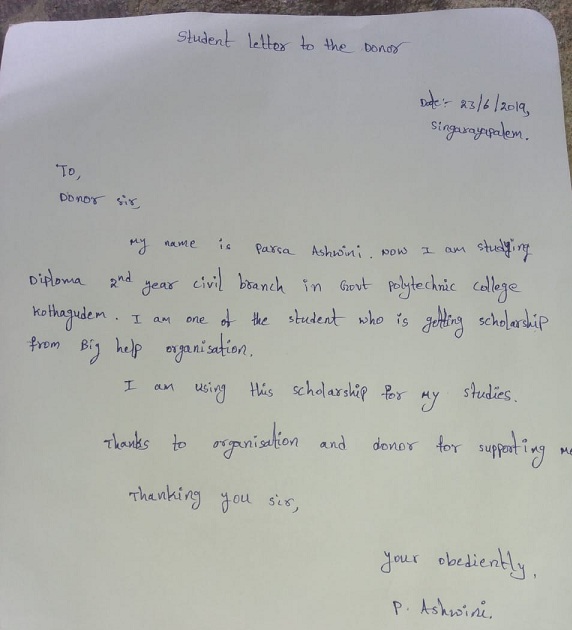 Student letter to the Donor
Date:- 23/6/2019,
Singarayapalem.
To,
Donor sir,
My name is Parsa Ashwini. Now I am studying
Diploma 2nd year civil branch in Govt polytechnic college
Kothagudem. I am one of the student who is getting scholarship
from Big help organisation.
I am using this scholarship for my studies.
Thanks to organisation and donor for supporting me
Thanking you sir,
your obediently,
P. Ashwini.